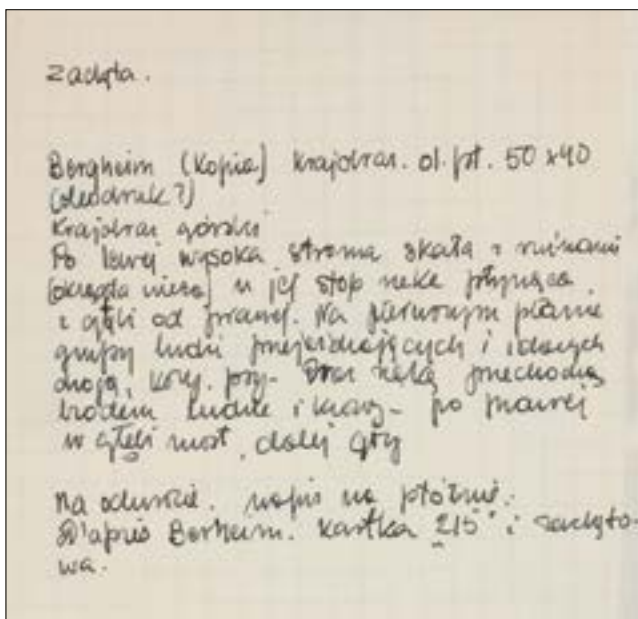 Zadęta.
Bergheim (Kopia) Krajobraz. ol. pł. 50 x 40
(oleodruk?)
Krajobraz górski
Po lewej wysoka stroma skała z ruinami
(okrągła wieża) u jej stóp rzeka płynąca
z głębi od prawej. Na pierwszym planie
grupy ludzi przejeżdżających i idących
drogą, psy. Przez rzekę przechodzą
brodem ludzie i krowy - po prawej
w głębi most, dalej góry
Na odwrocie. napis na płótnie:
D'après Berheim. Kartka 215
wa.